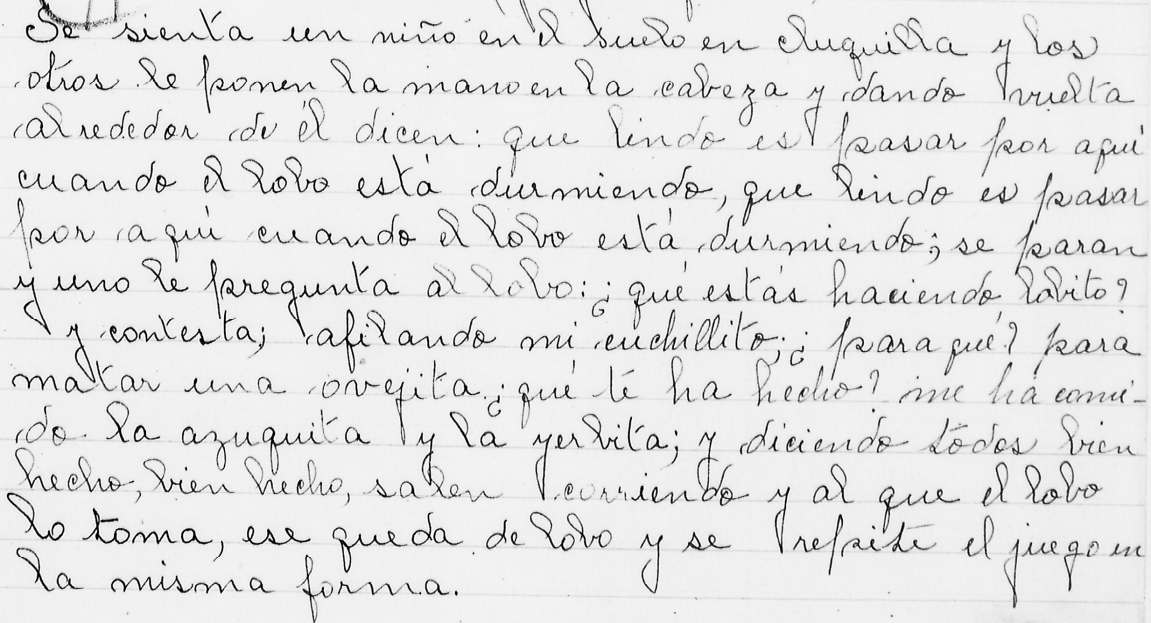 Se sienta un niño en el suelo en cluquilla y los
otros le ponen la mano en la cabeza y dando vuelta
alrededor de él dicen: que lindo es pasar por aquí
cuando el lobo está durmiendo, que lindo es pasar
por aquí cuando el lobo está durmiendo; se paran
y uno le pregunta al lobo: ¿qué estás haciendo lobito?
y contesta; afilando mi cuchillito; ¿para qué? para
matar una ovejita ¿qué té ha hecho? me ha comi-
do la azuquita y la yerbita; y diciendo todos bien
hecho, bien hecho, salen corriendo y al que el lobo
lo toma, ese queda de lobo y se repite el juego en
la misma forma.